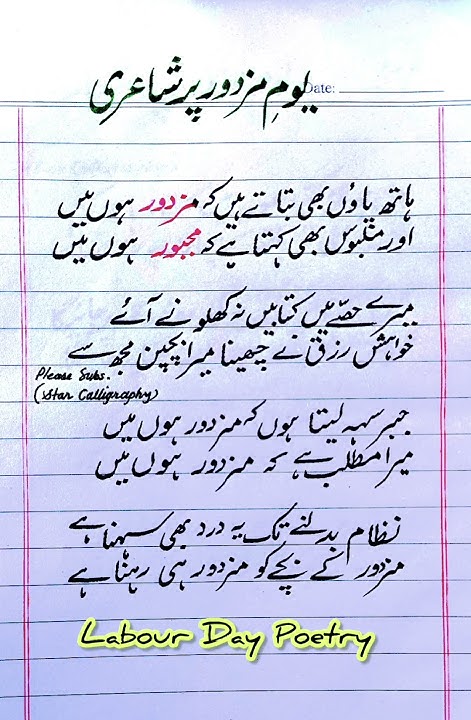 یومِ مزدور پر شاعری
Date:
ہاتھ پاؤں بھی بتاتے ہیں کہ مزدور ہوں میں
اور ملبوس بھی کہتا ہے کہ مجبور ہوں میں
میرے حصّے میں کتابیں نہ کھلونے آئے
خواہش رزق نے چھینا میرا بچپن مجھ سے
Please Subs.
(Star Calligraphy)
جبر سہہ لیتا ہوں کہ مزدور ہوں میں
میرا مطلب ہے کہ مزدور ہوں میں
نظام بدلنے تک یہ درد بھی سہنا ہے
مزدور کے بچے کو مزدور ہی رہنا ہے
Labour Day Poetry